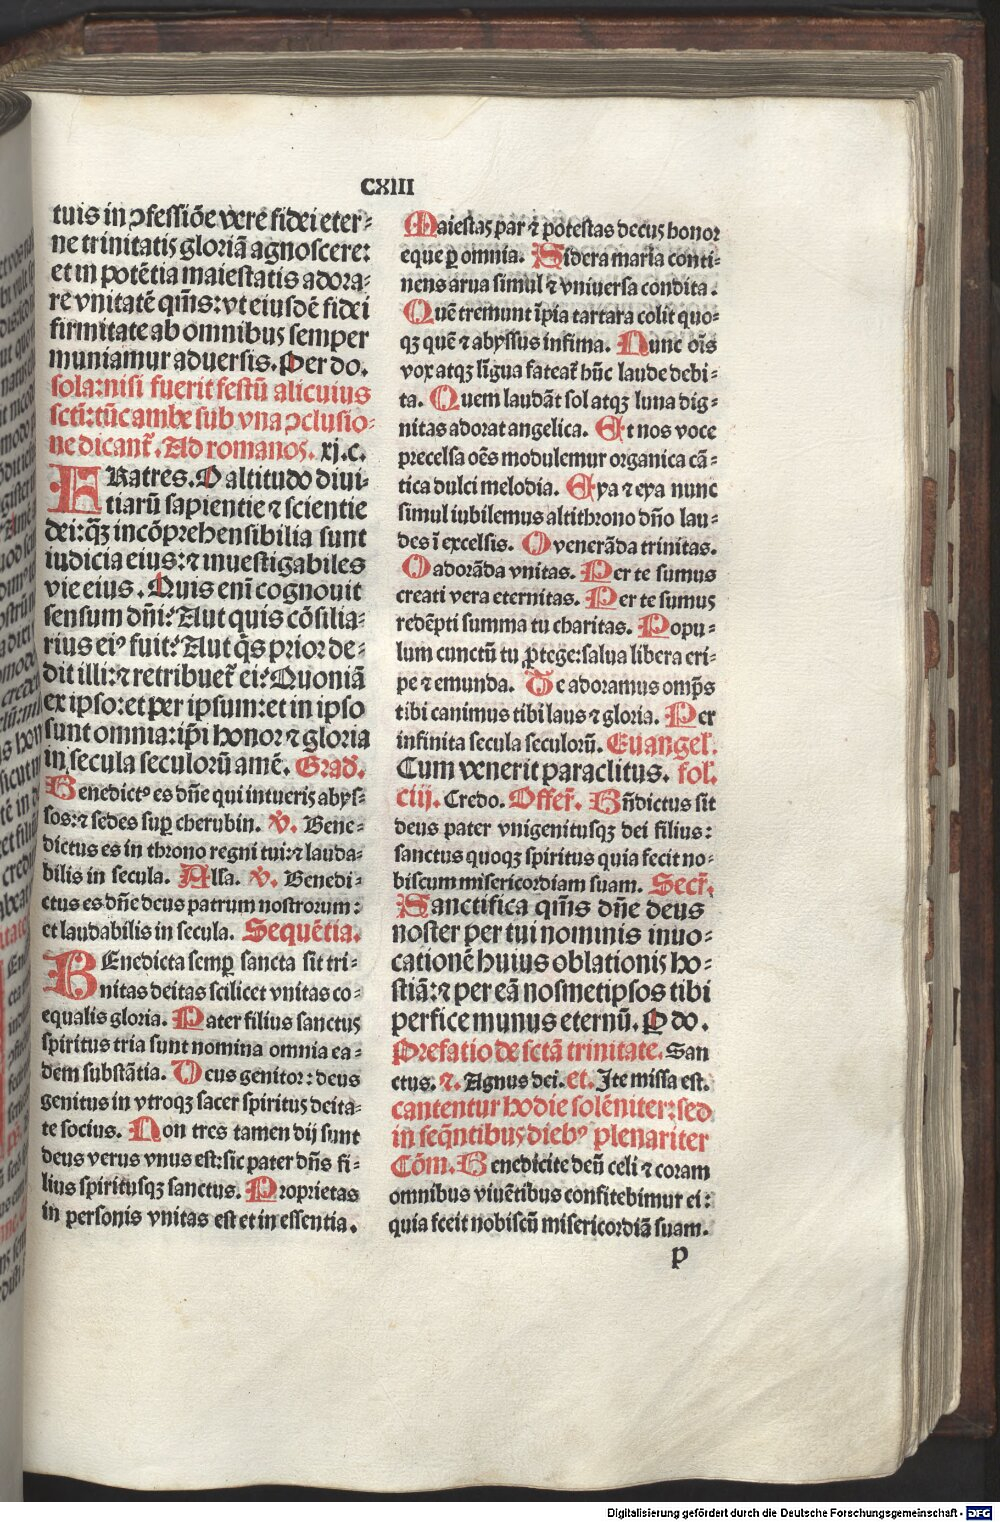 CXIII
tuis in ꝯfessiõe vere fidei eter⸗
ne trinitatis gloriã agnoscere:
et in potẽtia maiestatis adora⸗
re vnitatẽ qm̃s: vt eiusdẽ fidei
firmitate ab omnibus semper
muniamur aduersis. Per do.
sola: nisi fuerit festũ alicuius
sctĩ: tũc ambe sub vna ꝯclusio⸗
ne dicant᷑. Ad romanos. xj. c.
FRatres. O altitudo diui⸗
tiarũ sapientie ⁊ scientie
dei: q̃ꝫ incõprehensibilia sunt
iudicia eius: ⁊ inuestigabiles
vie eius. Quis eni cognouit
sensum dñi? Aut quis cõsilia⸗
rius eiꝰ fuit? Aut q̃s prior de⸗
dit illi: ⁊ retribuet᷑ ei? Quoniã
ex ipso: et per ipsum: et in ipso
sunt omnia: ip̃i honor ⁊ gloria
in secula seculorũ amẽ. Grad.
Benedictꝰ es dñe qui intueris abys⸗
sos: ⁊ sedes suꝑ cherubin. v. Bene⸗
dictus es in throno regni tui: ⁊ lauda⸗
bilis in secula. Alla. v. Benedi⸗
ctus es dñe deus patrum nostrorum:
et laudabilis in secula. Sequẽtia.
BEnedicta semꝑ sancta sit tri⸗
nitas deitas scilicet vnitas co⸗
equalis gloria. Pater filius sanctus
spiritus tria sunt nomina omnia ea⸗
dem substãtia. Deus genitor: deus
genitus in vtroqꝫ sacer spiritus deita⸗
te socius. Non tres tamen dij sunt
deus verus vnus est: sic pater dñs fi⸗
lius spiritusqꝫ sanctus. Proprietas
in personis vnitas est et in essentia.
Maiestas par ⁊ potestas decus honor
eque ꝑ omnia. Sidera maria conti⸗
nens arua simul ⁊ vniuersa condita.
Quẽ tremunt ĩpia tartara colit quo⸗
qꝫ quẽ ⁊ abyssus infima. Nunc oĩs
vox atqꝫ lĩgua fateat᷑ hũc laude debi⸗
ta. Quem laudãt sol atqꝫ luna dig⸗
nitas adorat angelica. Et nos voce
precelsa oẽs modulemur organica cã⸗
tica dulci melodia. Eya ⁊ eya nunc
simul iubilemus altithrono dño lau⸗
des ĩ excelsis. O venerãda trinitas.
O adorãda vnitas. Per te sumus
creati vera eternitas. Per te sumus
redẽpti summa tu charitas. Popu⸗
lum cunctũ tu ꝓtege: salua libera eri⸗
pe ⁊ emunda. Te adoramus omp̃s
tibi canimus tibi laus ⁊ gloria. Per
infinita secula seculorũ. Euangel᷑.
Cum venerit paraclitus. fol᷑.
ciij. Credo. Offer᷑. Bñdictus sit
deus pater vnigenitusqꝫ dei filius:
sanctus quoqꝫ spiritus quia fecit no⸗
biscum misericordiam suam. Secr᷑.
Sanctifica qm̃s dñe deus
noster per tui nominis inuo⸗
cationẽ huius oblationis ho⸗
stiã: ⁊ per eã nosmetipsos tibi
perfice munus eternũ. P do.
Prefatio de sctã trinitate. San
ctus. ⁊. Agnus dei. et. Ite missa est.
cantentur hodie solẽniter: sed
in seq̃ntibus diebꝰ plenariter
Cõm. Benedicite deũ celi ⁊ coram
omnibus viuẽtibus confitebimur ei:
quia fecit nobiscũ misericordiã suam.
p
Digitalisierung gefördert durch die Deutsche Forschungsgemeinschaft - DFG